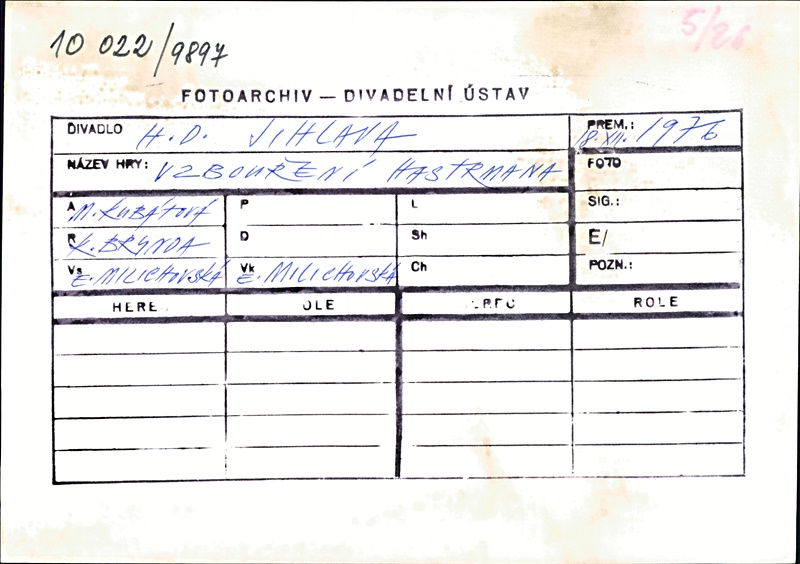 10 022/9897
5/26
FOTOARCHIV — DIVADELNÍ ÚSTAV
DIVADLO H.D. JIHLAVA
PREM.: 18.XII. 1976
NÁZEV HRY: VZBOUŘENÍ HASTRMANA
FOTO
A M. KUBÁTOVÁ P L SIG.:
R K. BRYNDA D Sh E/
Vs E. MILICHOVSKÁ Vk E. MILICHOVSKÁ Ch POZN.:
HERE OLE ROLE